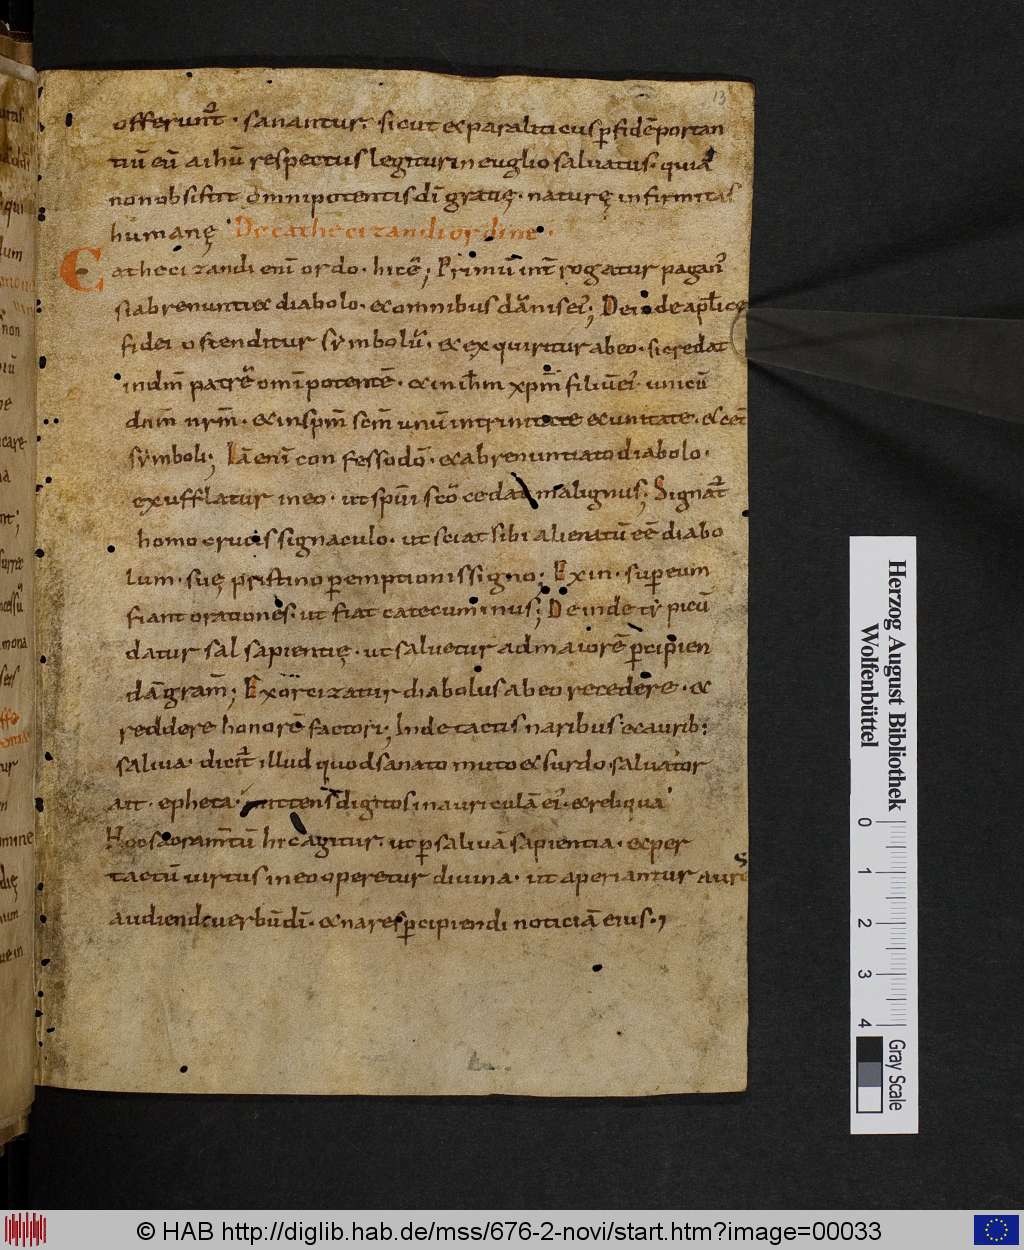 13
offerunt̄. sanantur. sicut & paralíticus ꝑ fidē portan
tiū eū a ihū respectus legitur in euglio saluatus. quia
non obsistit omnipotentis dī gratię. naturę infirmitas
humanę De cathecizandi ordine.
Cathecizandi eni ordo. hic ē; Primū int̄rogatur pagan᾽
si abrenuntiet diabolo. & omnibus dānis ei᾽; Deinde aplicę
fidei ostenditur sẏmbolū. & exquiritur ab eo. si credat
in dm̄ patrē omīpotentē. & in ihm xpm̄ filiū ei᾽ unicū
dnm̄ nrm̄. & in spm̄ scm̄ unū in trinitate & unitate. & cet̄
sẏmboli; Iā eni confesso dō. & abrenuntiato diabolo.
exufflatur in eo. ut spūi scō cedat malignus; Signat̄
homo crucis signaculo. ut sciat sibi alienatū eē diabo
lum. suę pristino ꝑemptionis signo; Exin. super eum
fiant orationes. ut fiat catecuminus; Deinde tẏpicū
datur sal sapientię. ut saluetur ad maiorē ꝑcipien
dā gram̄; Exorcizatur diabolus ab eo recedere. &
reddere honorē factori; Inde tactis naribus & aurib;
saliua. dicit̄ illud quod sanato muto & surdo saluator
ait. epheta. mittens digitos in auriculā ei᾽. & reliqua
Hoc sacram̄tū hic agitur. ut ꝑ saliuā sapientia. & per
tactū uirtus in eo operetur diuina. ut aperiantur aures
audiendi uerbū dī. & nares ꝑcipiendi noticiā eius.,
Herzog August Bibliothek
Wolfenbüttel
0 1 2 3 4
Gray Scale
© HAB http://diglib.hab.de/mss/676-2-novi/start.htm?image=00033